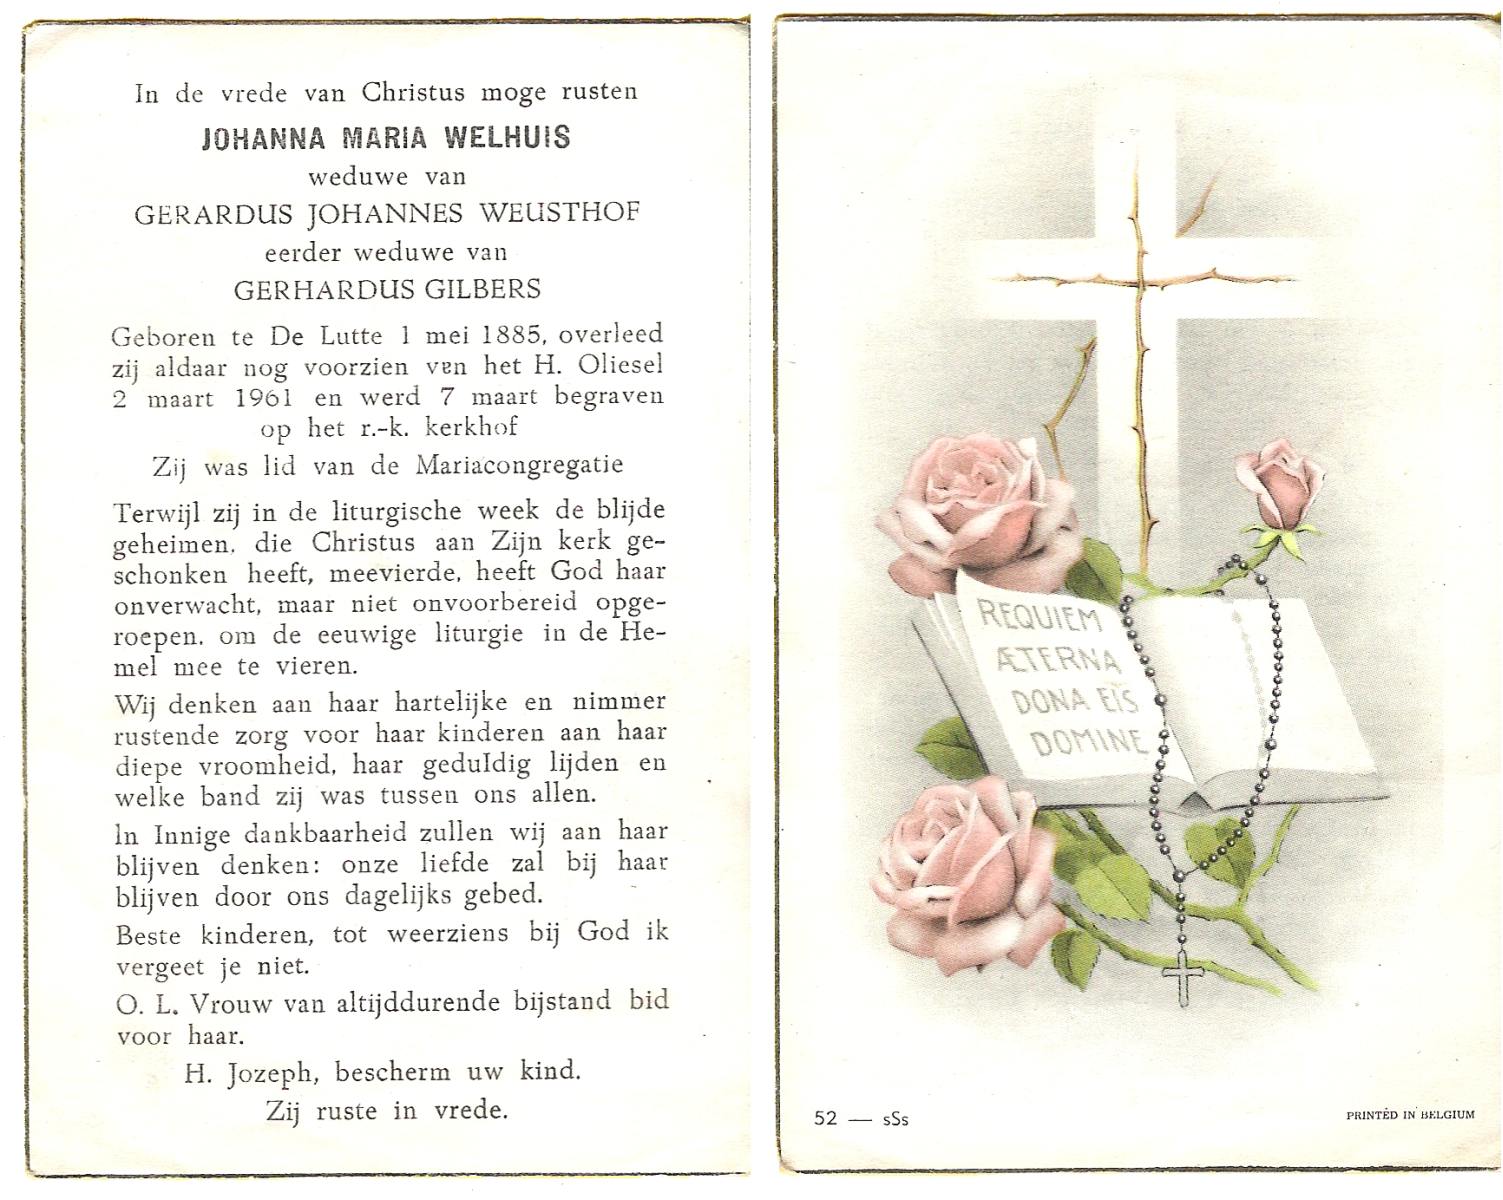 In de vrede van Christus moge rusten
JOHANNA MARIA WELHUIS
weduwe van
GERARDUS JOHANNES WEUSTHOF
eerder weduwe van
GERHARDUS GILBERS
Geboren te De Lutte 1 mei 1885, overleed
zij aldaar nog voorzien van het H. Oliesel
2 maart 1961 en werd 7 maart begraven
op het r.-k. kerkhof
Zij was lid van de Mariacongregatie
Terwijl zij in de liturgische week de blijde
geheimen, die Christus aan Zijn kerk ge-
schonken heeft, meevierde, heeft God haar
onverwacht, maar niet onvoorbereid opge-
roepen, om de eeuwige liturgie in de He-
mel mee te vieren.
Wij denken aan haar hartelijke en nimmer
rustende zorg voor haar kinderen aan haar
diepe vroomheid, haar geduldig lijden en
welke band zij was tussen ons allen.
In Innige dankbaarheid zullen wij aan haar
blijven denken: onze liefde zal bij haar
blijven door ons dagelijks gebed.
Beste kinderen, tot weerziens bij God ik
vergeet je niet.
O. L. Vrouw van altijddurende bijstand bid
voor haar.
H. Jozeph, bescherm uw kind.
Zij ruste in vrede.
REQUIEM
ÆTERNA
DONA EÏS
DOMINE
52 — sSs
PRINTED IN BELGIUM